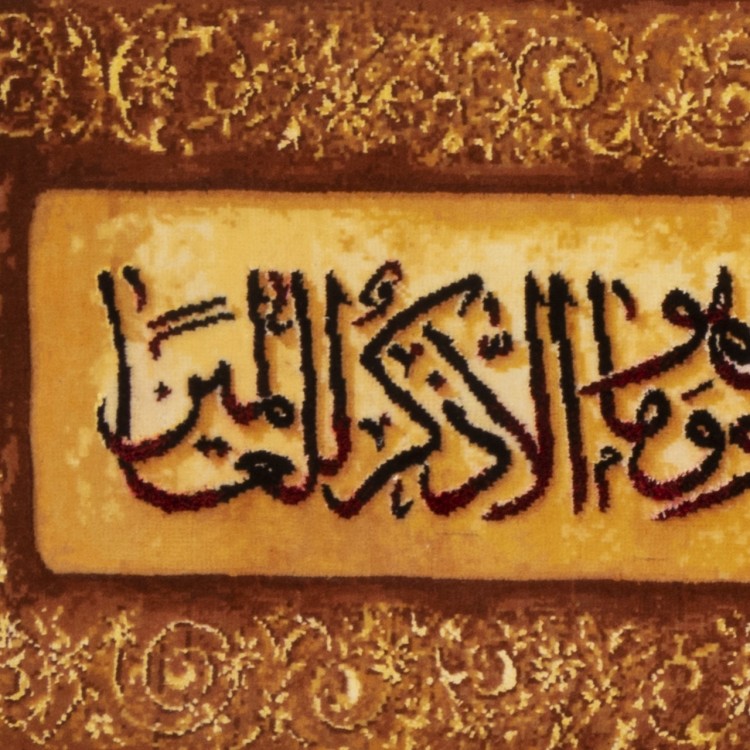 وما هو إلا ذكر للعالمين